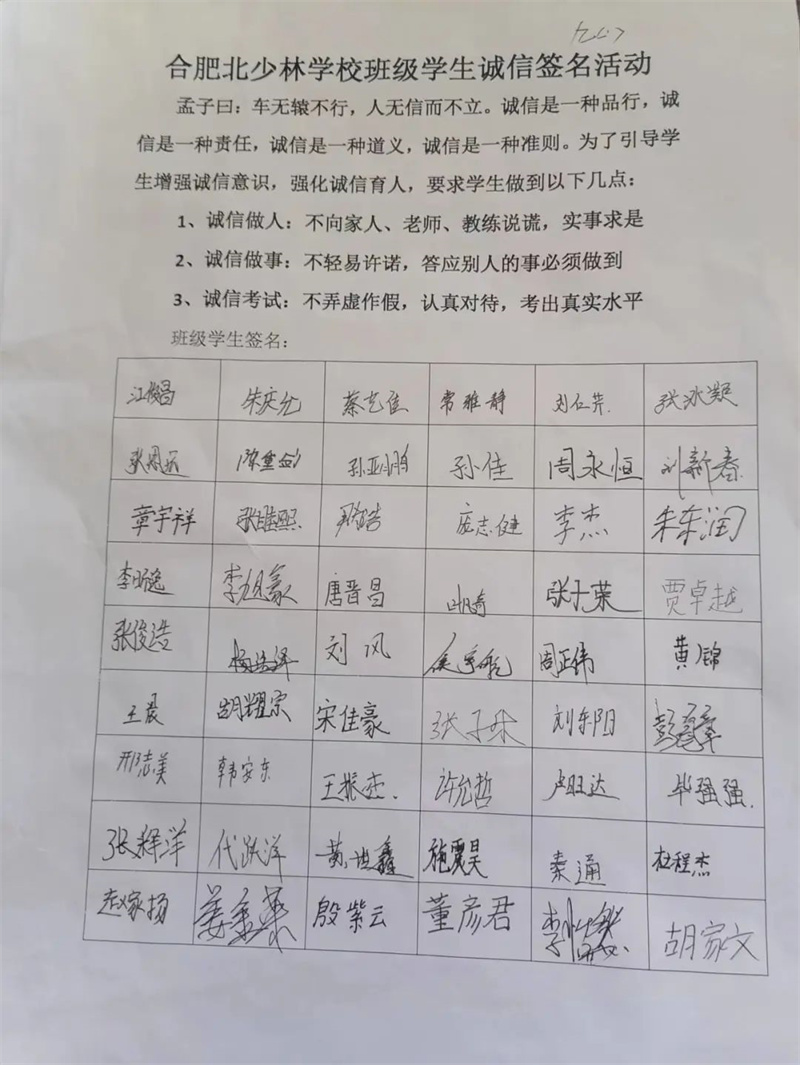 合肥北少林学校班级学生诚信签名活动
孟子曰：车无辕不行，人无信而不立。诚信是一种品行，诚
信是一种责任，诚信是一种道义，诚信是一种准则。为了引导学
生增强诚信意识，强化诚信育人，要求学生做到以下几点：
1、诚信做人：不向家人、老师、教练说谎，实事求是
2、诚信做事：不轻易许诺，答应别人的事必须做到
3、诚信考试：不弄虚作假，认真对待，考出真实水平
班级学生签名：
江俊昌 朱庆允 蔡艺佳 常雅静 刘仁芹 张冰凝
孙亚鹏 孙佳 周永恒 刘新春
章宇祥 张维熙 庞志健 李杰 朱东润
李旭豪 唐晋昌 叶奇 张士荣 贾卓越
张俊浩 刘风 周正伟 黄锦
王晨 胡耀宗 宋佳豪 刘东阳
邢志美 韩安东 王振杰 许允哲 卢旺达 毕强强
张辉洋 代跃洋 黄世鑫 施震昊 秦通 杜程杰
赵家扬 殷紫云 董彦君 胡家文